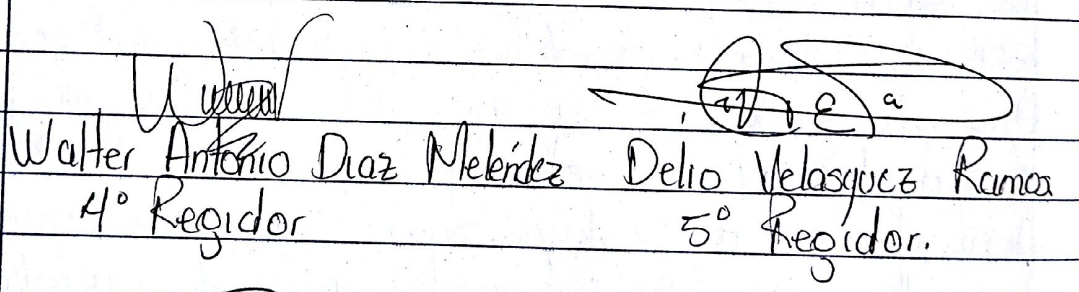 Walter Antonio Diaz Meléndez Delio Velasquez Ramos
4° Regidor 5° Regidor.